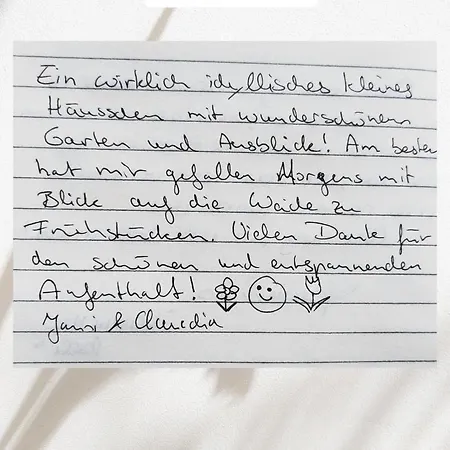 Ein wirklich idyllisches kleines
Häusschen mit wunderschönem
Garten und Ausblick! Am besten
hat mir gefallen Morgens mit
Blick auf die Weide zu
Frühstücken. Vielen Dank für
den schönen und entspannenden
Aufenthalt!
& Claudia